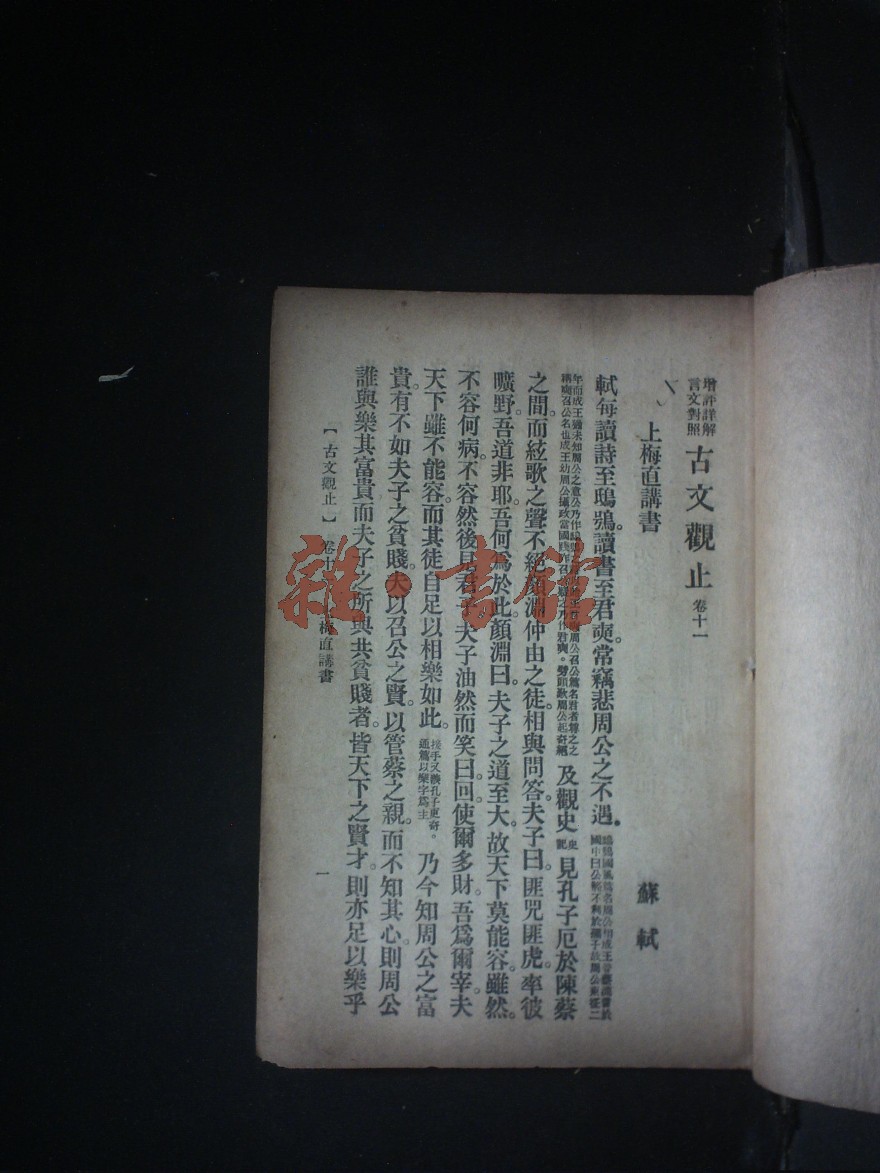 增評詳解
言文對照
古文觀止 卷十一
上梅直講書
蘇軾
軾每讀詩至鴟鴞。讀書至君奭。常竊悲周公之不遇。
及觀史 史記 見孔子厄於陳蔡
之間。而絃歌之聲不絕。顏淵仲由之徒。相與問答。夫子曰。匪兕匪虎。率彼
曠野。吾道非耶。吾何爲於此。顏淵曰。夫子之道至大。故天下莫能容。雖然。
不容何病。不容然後見君子。夫子油然而笑曰。回使爾多財。吾爲爾宰。夫
天下雖不能容。而其徒自足以相樂如此。
通篇以樂字爲主
乃今知周公之富
貴。有不如夫子之貧賤。夫以召公之賢。以管蔡之親。而不知其心。則周公
誰與樂其富貴。而夫子之所與共貧賤者。皆天下之賢才。則亦足以樂乎
【古文觀止】 卷十 梅直講書
一
雜·書館